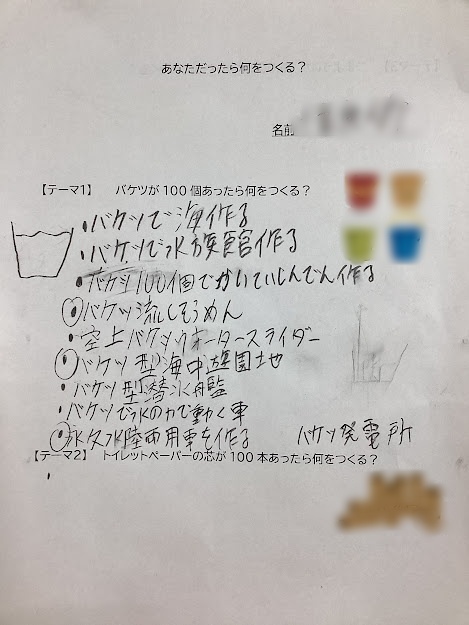 あなただったら何をつくる？
名前
【テーマ1】 バケツが100個あったら何をつくる？
・バケツで海作る
・バケツで水族館作る
・バケツ100個でかいていしんでん作る
・バケツ流しそうめん
・空上バケツウォータースライダー
・バケツ型海中遊園地
・バケツ型潜水艦
・バケツで水の力で動く車
・永久水陸両用車を作る
バケツ発電所
【テーマ2】 トイレットペーパーの芯が100本あったら何をつくる？
・